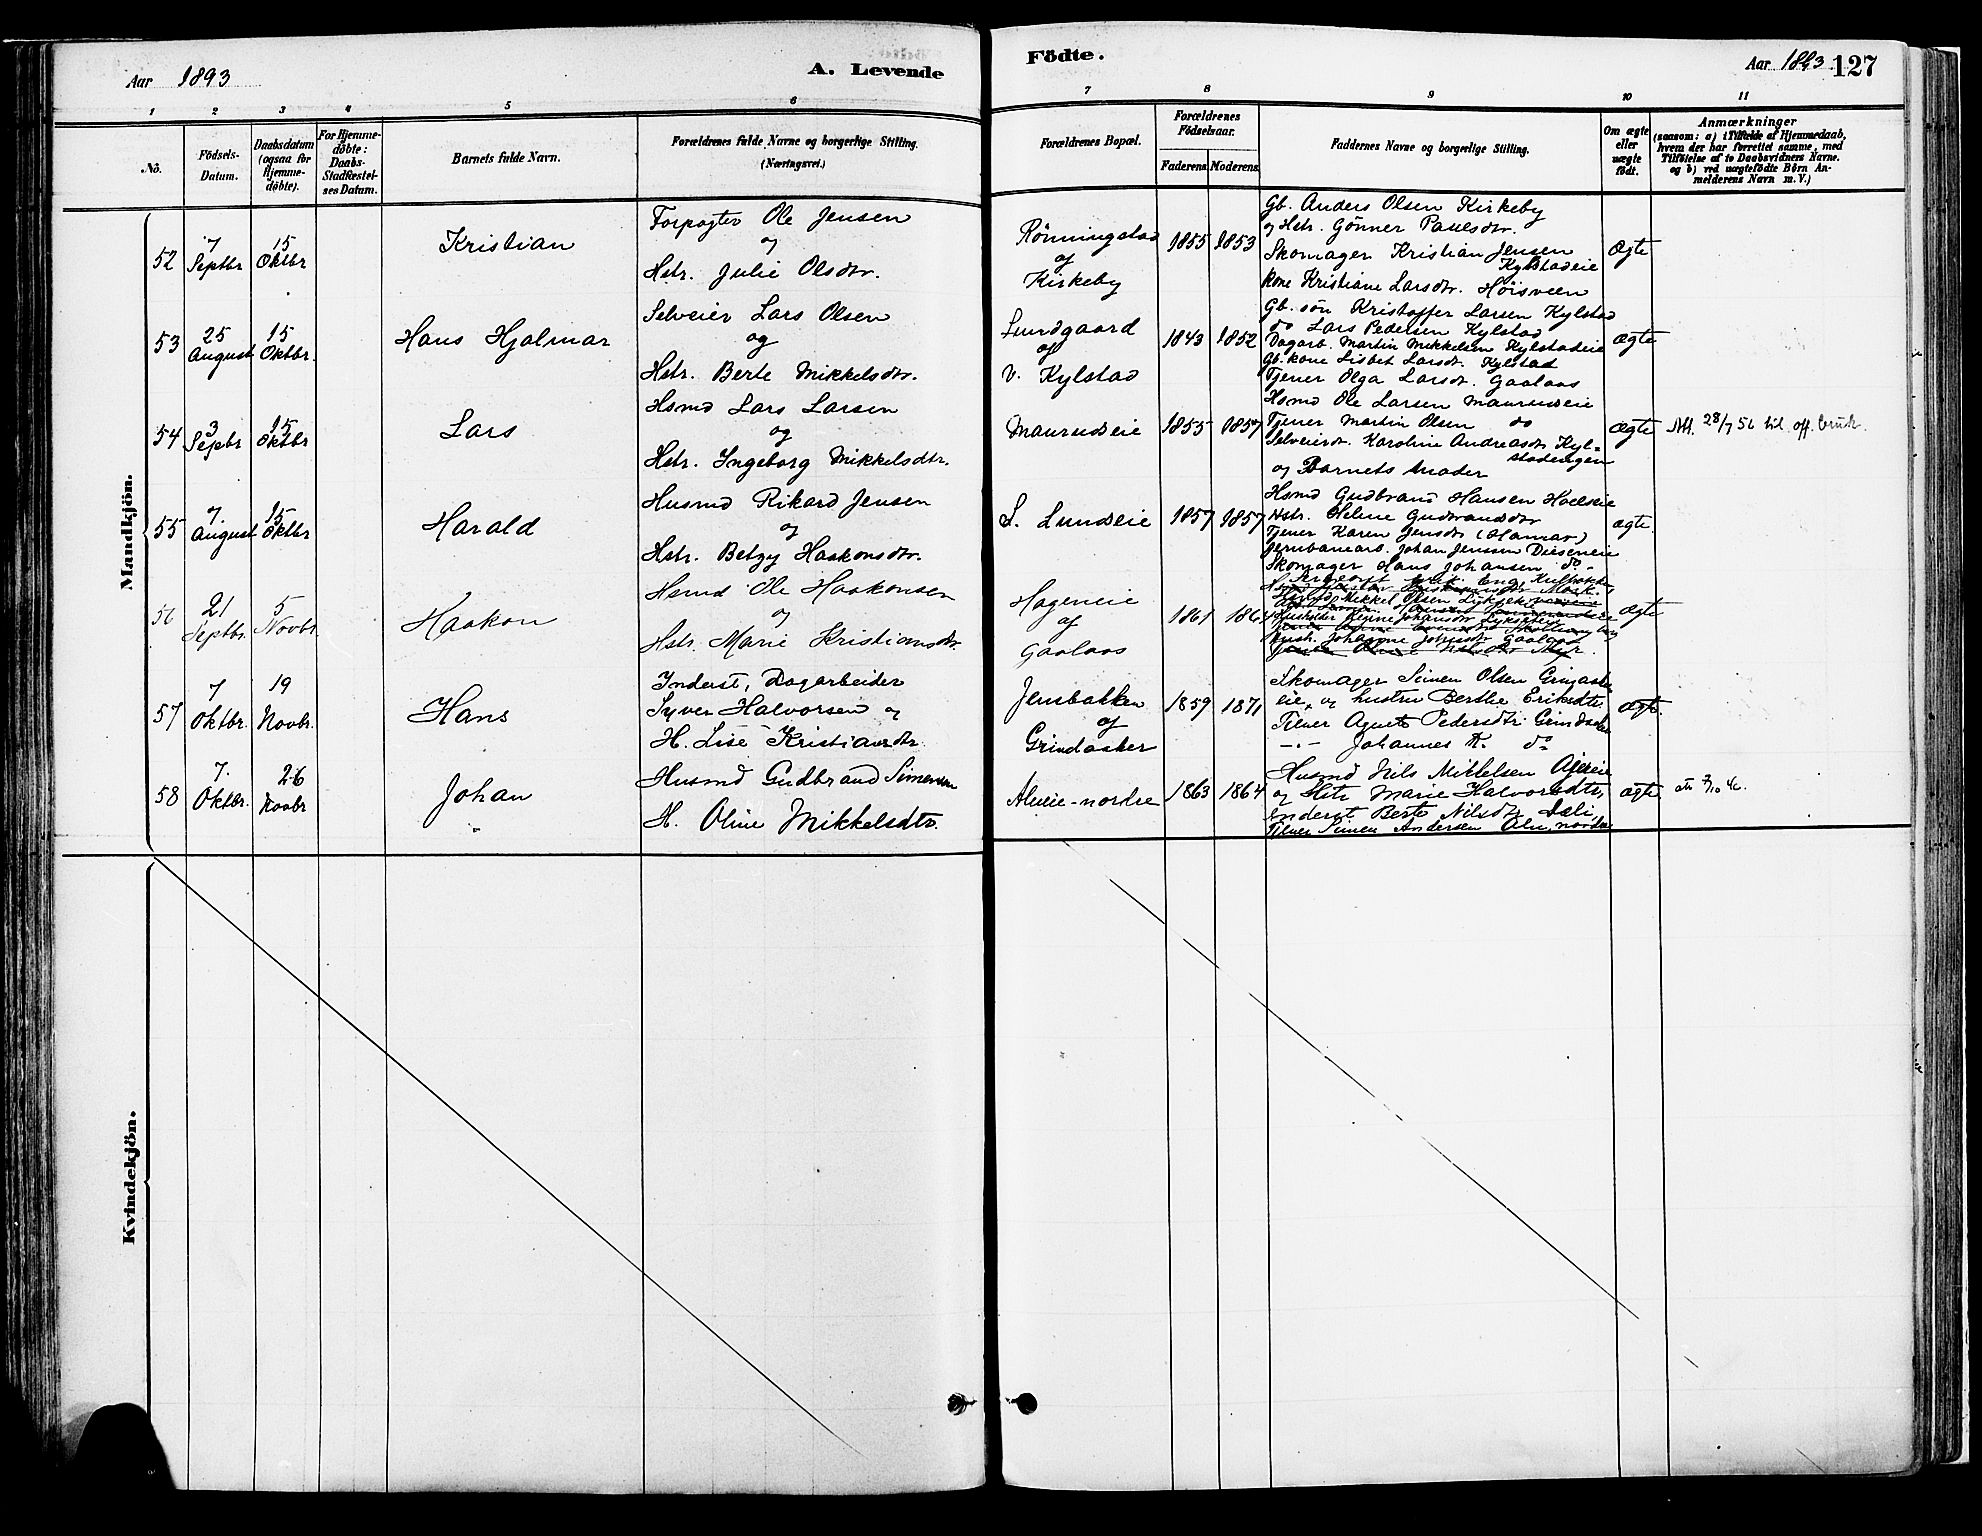 Aar 1893
A. Levende
Födte.
Aar 1893
127
1 2 3 4 5 6 7 8 9 10 11
No.
Födsels-
Datum.
Daabsdatum
(ogsaa för
Hjemme-
döbte).
For Hjemme-
döbte:
Daabs-
Stadfæstel-
ses Datum.
Barnets fulde Navn.
Forældrenes fulde Navne og borgerlige Stilling.
(Næringsvei.)
Forældrenes Bopæl.
Forældrenes
Födselsaar.
Faderens
Moderens
Faddernes Navne og borgerlige Stilling.
Om ægte
eller
uægte
födt.
Anmærkninger
(saasom: a) i Tilfælde af Hjemmedaab,
hvem der har forrettet samme, med
Tilföielse af to Daabsvidners Navne.
og b) ved uægtefödte Börn An-
melderens Navn m. V.)
Mandkjön.
52
7
Septbr
15
Oktbr
Kristian
Forpagter Ole Jensen
og
Hstr. Julie Olsdtr.
Rönningstad
af
Kirkeby
1855
1853
Gb. Anders Olsen Kirkeby
og Hstr. Gönner Paulsdtr.
Skomager Kristian Jensen
Kylstadeie
kone Kristiane Larsdtr. Höisveen
Ægte
53
25
August
15
Oktbr.
Hans Hjalmar
Selveier Lars Olsen
og
Hstr. Berte Mikkelsdtr.
Lundgaard
af
V. Kylstad
1843
1852
Gb. sön Kristoffer Larsen Kylstad
do Lars Pedersen Kylstad
Dagarb. Martin Mikkelsen Kylstadeie
Gb. kone Lisbet Larsdt. Kylstad
Tjener Olga Larsdt. Gaalaas
ægte
54
3
Septbr
15
Oktbr
Lars
Hsmd Lars Larsen
og
Hstr. Ingeborg Mikkelsdtr.
Maurudseie
1855
1857
Hsmd Ole Larsen Maurudseie
Tjener Martin Olsen do
Selveierdt. Karoline Andreasdt. Kyl-
stadengen
og Barnets Moder
ægte
Att. 28/7 56 til off. bruk.
55
7
August
15
Oktbr
Harald
Husmd Rikard Jensen
og
Hstr. Betzy Haakonsdtr.
L. Lundseie
1857
1857
Hsmd Gudbrand Hansen Hoelseie
Hstr. Helene Gudbrandsdtr
Tjener Karen Jensdt. (Hamar)
Jernbanearb. Johan Jensen Dieseneie
Skomager Hans Johansen do
ægte
56
21
Septbr.
5
Novbr.
Haakon
Hsmd Ole Haakonsen
og
Hstr. Marie Kristiansdtr.
Hageneie
af
Gaalaas
1861
1864
Mikkel Olsen Lykseteie
Regine Johansdtr Lykseteie
Johanne Johnsdtr Gaalaas
ægte
57
7
Oktbr.
19
Novbr.
Hans
Inderst, Dagarbeider
Syver Halvorsen og
H. Lise Kristiansdtr.
Jensbakken
af
Grindaaker
1859
1871
Skomager Simen Olsen Grinaaker
eie, og hustru Berthe Eriksdtr.
Tilner Agnete Pedersdtr. Grindaaker
–"– Johannes K. do
ægte.
58
7.
Oktbr.
26
Novbr
Johan
Husmd Gudbrand Simensen
H. Oline Mikkelsdtr.
Alueie-nordre
1863
1864
Husmd Nils Mikkelsen Ajereie
og Hstr Marie Halvorsdtr.
Inderst Berte Nilsdtr Dæli
Tilner Simen Andersen Alu, nordre
ægte
Kvindekjön.